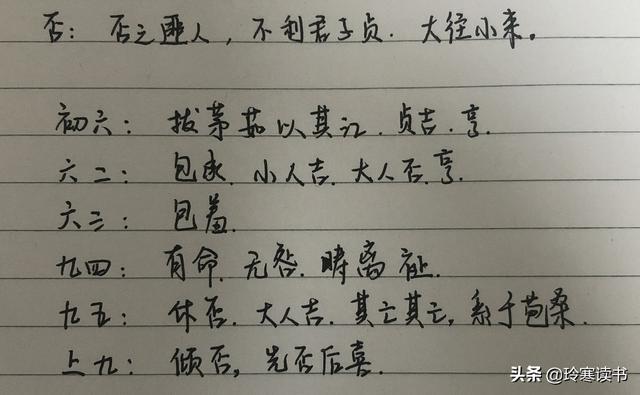 否：否之匪人，不利君子贞．大径小来。
初六：拔茅茹以其汇．贞吉．亨．
六二：包承．小人吉．大人否．亨．
六三：包羞．
九四：有命．无咎．畴离祉．
九五：休否．大人吉．其亡其亡，系于苞桑．
上九：倾否，先否后喜．
头条 @玲寒读书